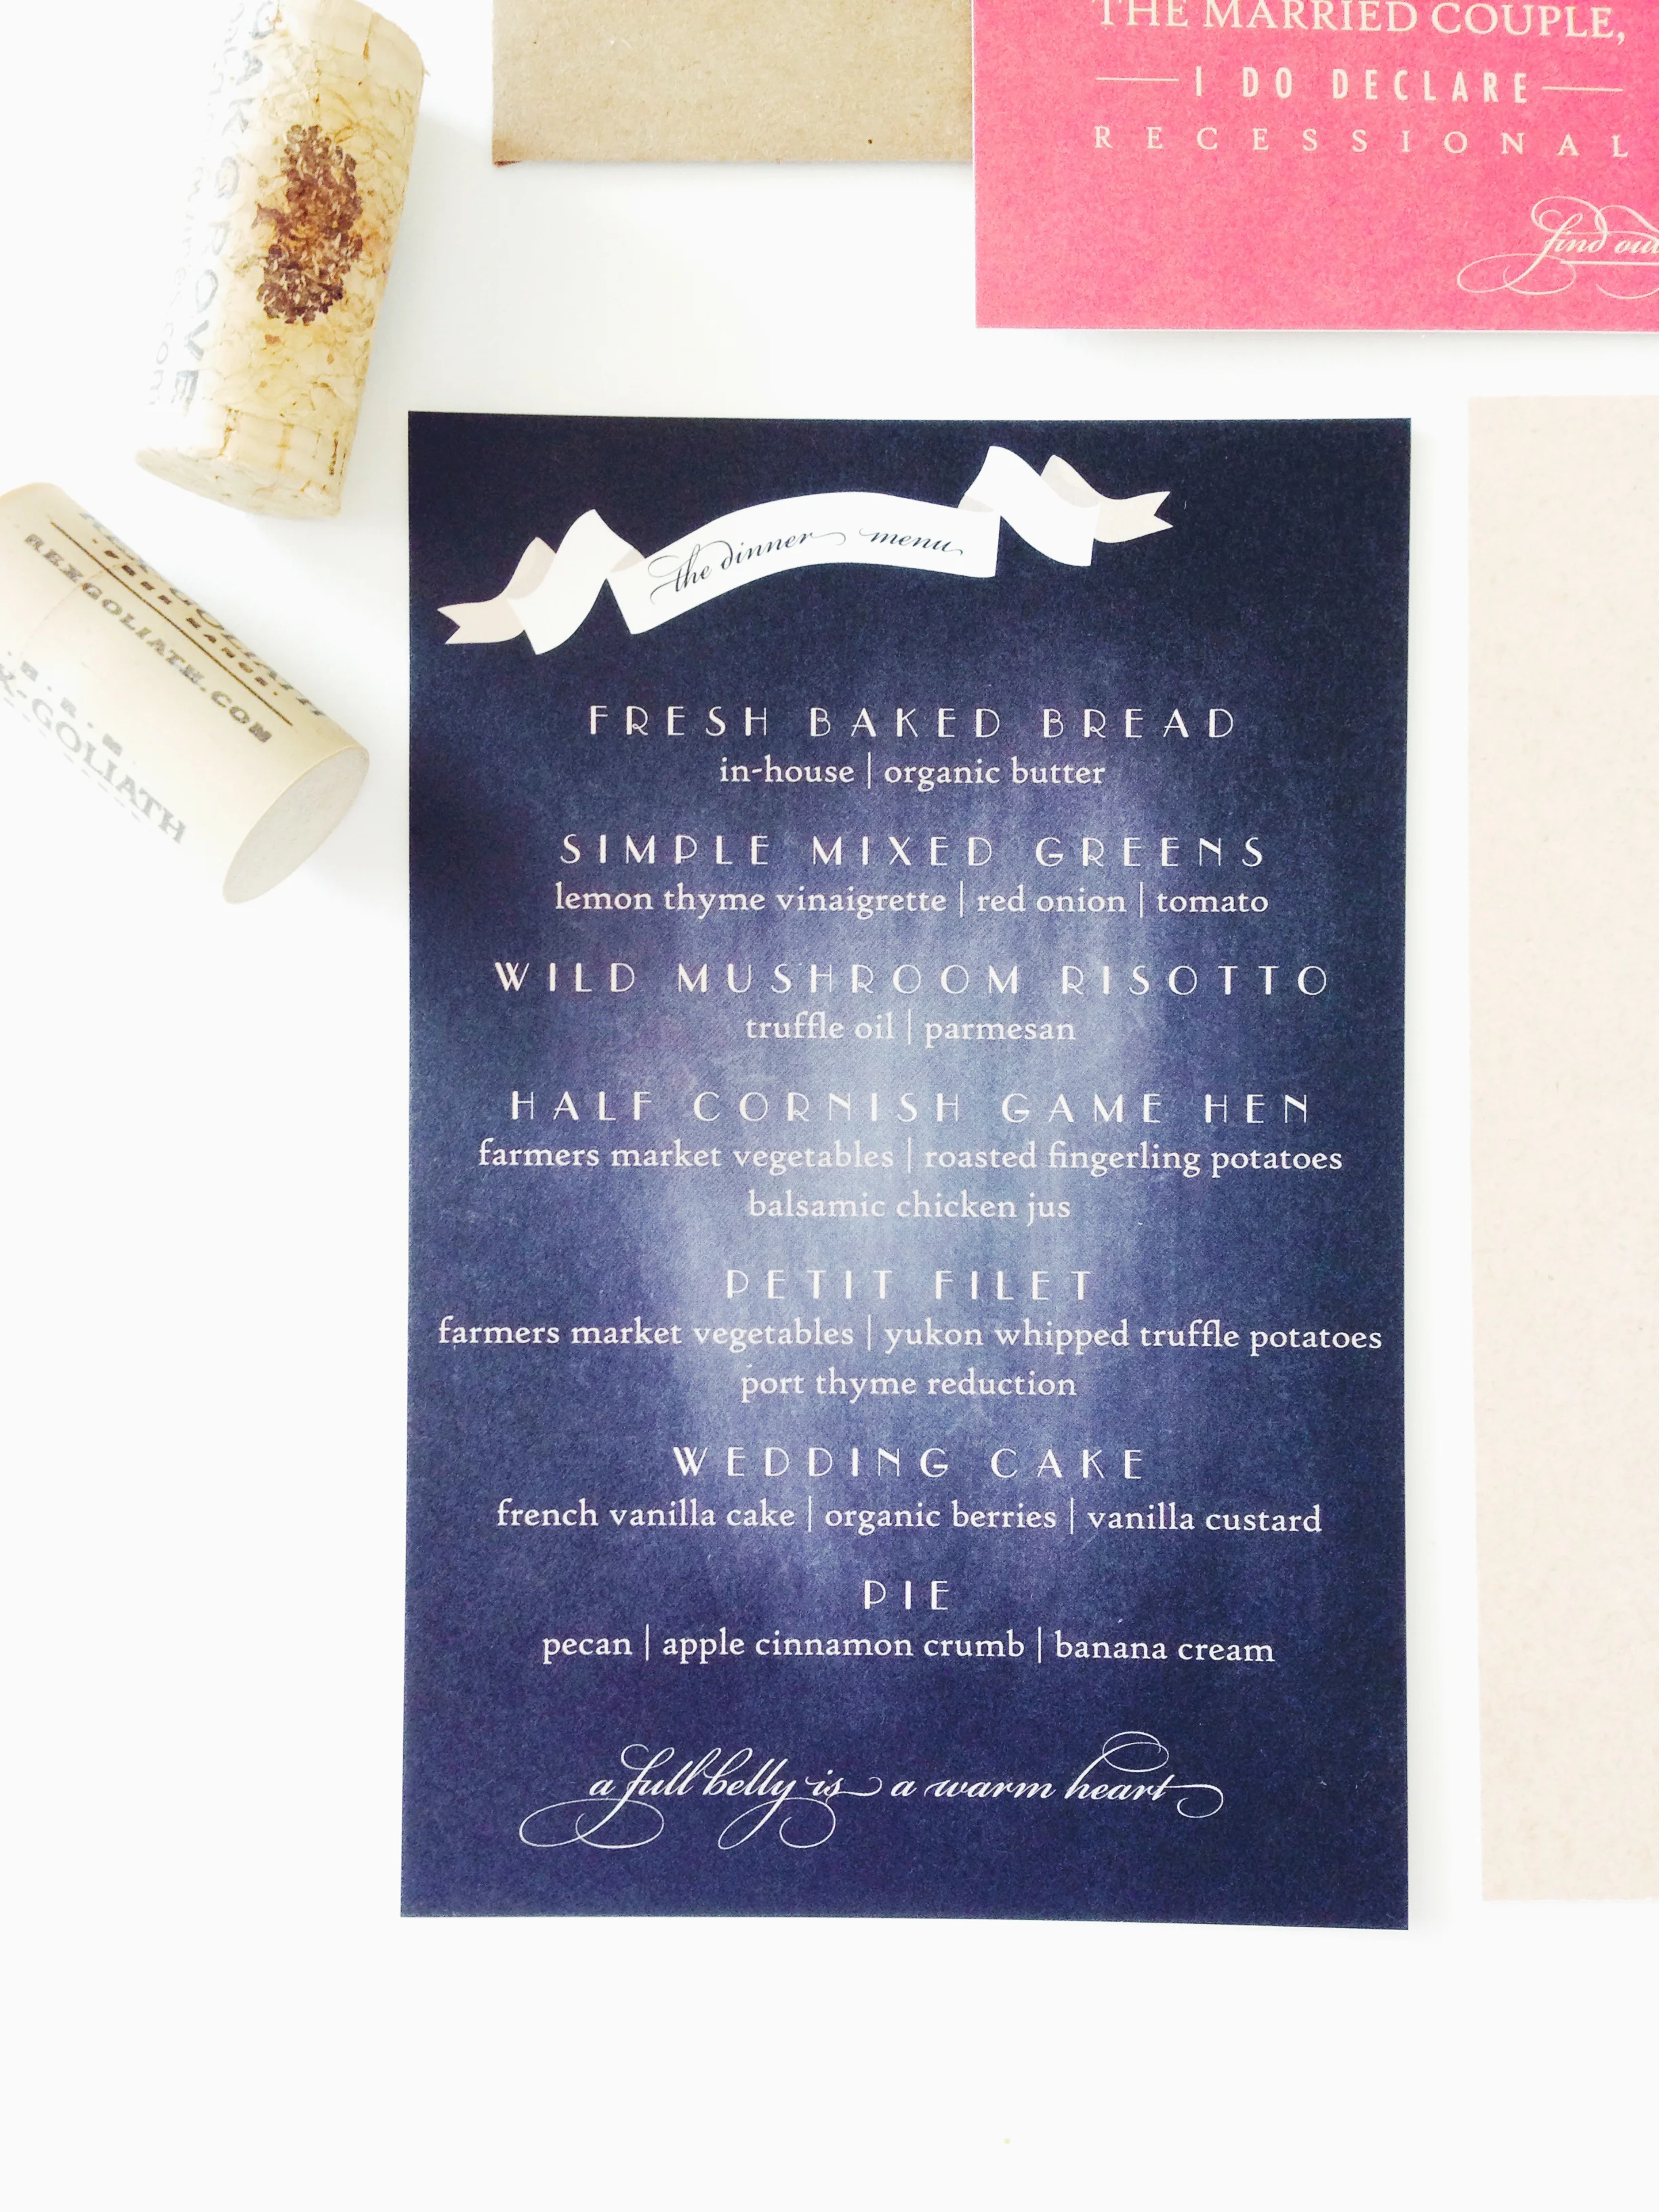 THE MARRIED COUPLE,
I DO DECLARE
RECESSIONAL
find out
OAK GROVE
REXGOLIATH.COM
X-GOLIATH
the dinner menu
FRESH BAKED BREAD
in-house | organic butter
SIMPLE MIXED GREENS
lemon thyme vinaigrette | red onion | tomato
WILD MUSHROOM RISOTTO
truffle oil | parmesan
HALF CORNISH GAME HEN
farmers market vegetables | roasted fingerling potatoes
balsamic chicken jus
PETIT FILET
farmers market vegetables | yukon whipped truffle potatoes
port thyme reduction
WEDDING CAKE
french vanilla cake | organic berries | vanilla custard
PIE
pecan | apple cinnamon crumb | banana cream
a full belly is a warm heart